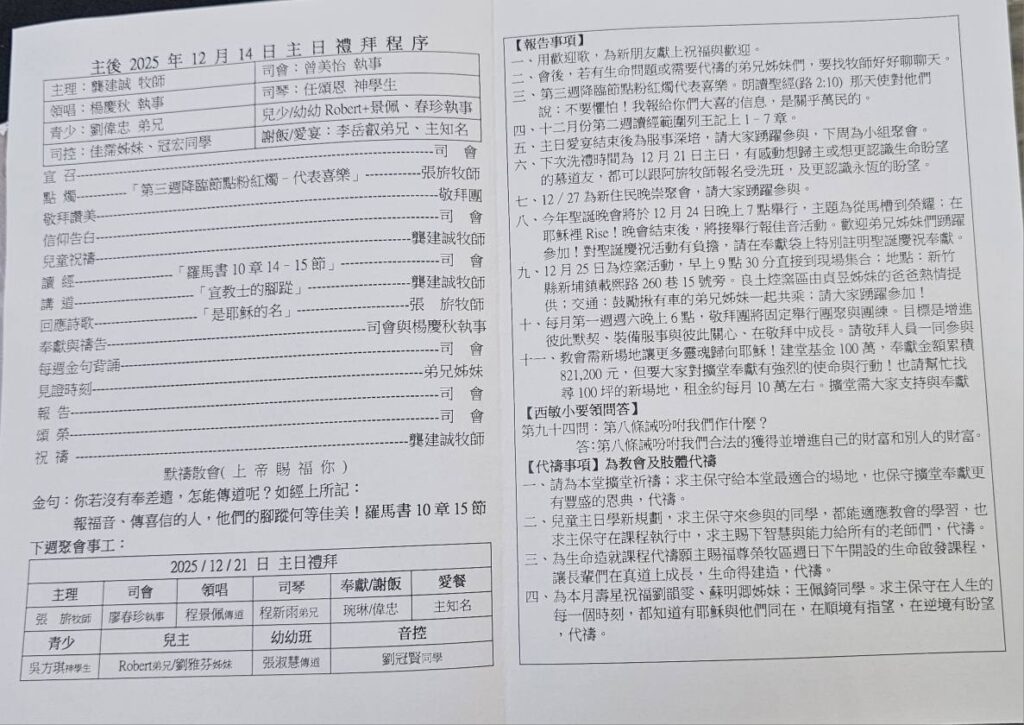 主後 2025 年 12 月 14 日 主 日 禮 拜 程 序
主理：龔建誠 牧師 司會：曾美怡 執事
領唱：楊慶秋 執事 司琴：任頌恩 神學生
青少：劉偉忠 弟兄 兒少/幼幼 Robert+景佩、春珍執事
司控：佳霈姊妹、冠宏同學 謝飯/愛宴：李岳叡弟兄、主知名
宣 召 司 會
點 燭「第三週降臨節點粉紅燭－代表喜樂」張旂牧師
敬拜讚美 敬拜團
信仰告白 司 會
兒童祝禱 龔建誠牧師
讀 經「羅馬書 10 章 14－15 節」司 會
講 道「宣教士的腳蹤」龔建誠牧師
回應詩歌「是耶穌的名」張 旂牧師
奉獻與禱告 司會與楊慶秋執事
每週金句背誦 司 會
見證時刻 弟兄姊妹
報 告 司 會
頌 榮 司 會
祝 禱 龔建誠牧師
默禱散會( 上 帝 賜 福 你 )
金句：你若沒有奉差遣，怎能傳道呢？如經上所記：
報福音、傳喜信的人，他們的腳蹤何等佳美！羅馬書 10 章 15 節
下週聚會事工：
2025 / 12 / 21 日 主日禮拜
主理 司會 領唱 司琴 奉獻/謝飯 愛餐
張 旂牧師 廖春珍執事 程景佩傳道 程新雨弟兄 琬琳/偉忠 主知名
青少 兒主 幼幼班 音控
吳方琪神學生 Robert弟兄/劉雅芬姊妹 張淑慧傳道 劉冠賢同學
【報告事項】
一、用歡迎歌，為新朋友獻上祝福與歡迎。
二、會後，若有生命問題或需要代禱的弟兄姊妹們，要找牧師好好聊聊天。
三、第三週降臨節點粉紅燭代表喜樂。朗讀聖經(路 2:10) 那天使對他們
說：不要懼怕！我報給你們大喜的信息，是關乎萬民的。
四、十二月份第二週讀經範圍列王記上 1－7 章。
五、主日愛宴結束後為服事深培，請大家踴躍參與，下周為小組聚會。
六、下次洗禮時間為 12 月 21 日主日，有感動想歸主或想更認識生命盼望
的慕道友，都可以跟阿旂牧師報名受洗班，及更認識永恆的盼望。
七、12 / 27 為新住民晚崇聚會，請大家踴躍參與。
八、今年聖誕晚會將於 12 月 24 日晚上 7 點舉行，主題為從馬槽到榮耀；在
耶穌裡 Rise！晚會結束後，將接舉行報佳音活動。歡迎弟兄姊妹們踴躍
參加！對聖誕慶祝活動有負擔，請在奉獻袋上特別註明聖誕慶祝奉獻。
九、12 月 25 日為焢窯活動，早上 9 點 30 分直接到現場集合；地點：新竹
縣新埔鎮載熙路 260 巷 15 號旁。良土焢窯區由貞昱姊妹的爸爸熱情提
供；交通：鼓勵揪有車的弟兄姊妹一起共乘；請大家踴躍參加！
十、每月第一週週六晚上 6 點，敬拜團將固定舉行團聚與團練。目標是增進
彼此默契、裝備服事與彼此關心、在敬拜中成長。請敬拜人員一同參與
十一、教會需新場地讓更多靈魂歸向耶穌！建堂基金 100 萬，奉獻金額累積
821,200 元，但要大家對擴堂奉獻有強烈的使命與行動！也請幫忙找
尋 100 坪的新場地，租金約每月 10 萬左右。擴堂需大家支持與奉獻
【西敏小要領問答】
第九十四問：第八條誡吩咐我們作什麼？
答:第八條誡吩咐我們合法的獲得並增進自己的財富和別人的財富。
【代禱事項】為教會及肢體代禱
一、請為本堂擴堂祈禱；求主保守給本堂最適合的場地，也保守擴堂奉獻更
有豐盛的恩典，代禱。
二、兒童主日學新規劃，求主保守來參與的同學，都能適應教會的學習，也
求主保守在課程執行中，求主賜下智慧與能力給所有的老師們，代禱。
三、為生命造就課程代禱願主賜福尊榮牧區週日下午開設的生命啟發課程，
讓長輩們在真道上成長，生命得建造，代禱。
四、為本月壽星祝福劉韻雯、蘇明卿姊妹；王佩錡同學。求主保守在人生的
每一個時刻，都知道有耶穌與他們同在，在順境有指望，在逆境有盼望
，代禱。